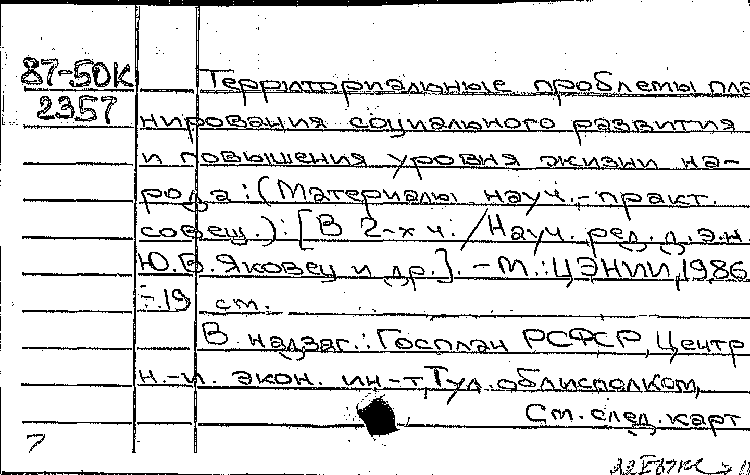 87-50К
2357
Территориальные проблемы пла
нирования социального развития
и повышения уровня жизни на-
рода: (Материалы науч.-практ.
совещ.): [В 2-х ч. / Науч. ред. д.э.н.
Ю.В. Яковец и др.]. - М.: ЦЭНИИ, 1986
-.19 см.
В надзаг.: Госплан РСФСР, Центр
н.-и. экон. ин-т, Тул. облисполком,
См. след. карт
7